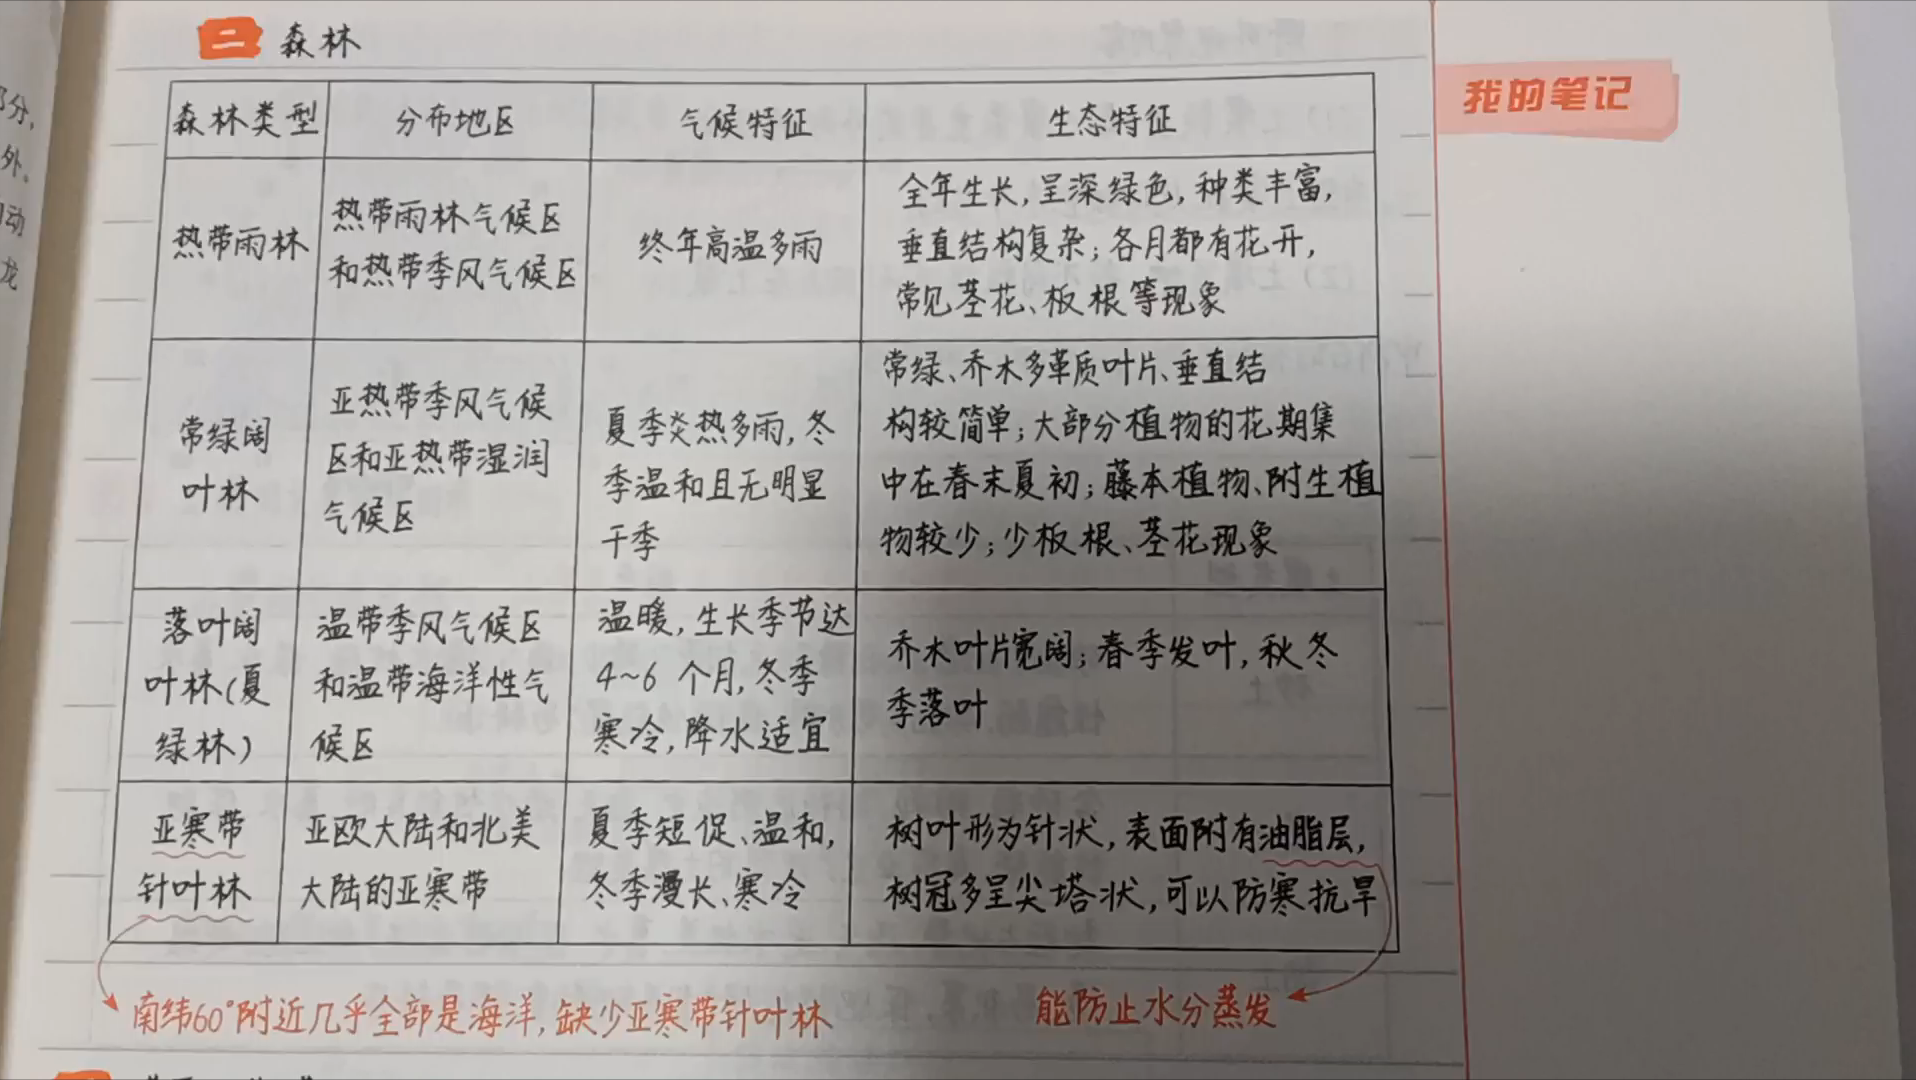 部分,
外、
动
龙
二 森林
我的笔记
森林类型 分布地区 气候特征 生态特征
热带雨林
热带雨林气候区
和热带季风气候区
终年高温多雨
全年生长,呈深绿色,种类丰富,
垂直结构复杂;各月都有花开,
常见茎花、板根等现象
常绿阔
叶林
亚热带季风气候
区和亚热带湿润
气候区
夏季炎热多雨,冬
季温和且无明显
干季
常绿、乔木多革质叶片、垂直结
构较简单;大部分植物的花期集
中在春末夏初;藤本植物、附生植
物较少;少板根、茎花现象
落叶阔
叶林(夏
绿林)
温带季风气候区
和温带海洋性气
候区
温暖,生长季节达
4~6 个月,冬季
寒冷,降水适宜
乔木叶片宽阔;春季发叶,秋冬
季落叶
亚寒带
针叶林
亚欧大陆和北美
大陆的亚寒带
夏季短促、温和,
冬季漫长、寒冷
树叶形为针状,表面附有油脂层,
树冠多呈尖塔状,可以防寒抗旱
南纬60°附近几乎全部是海洋,缺少亚寒带针叶林
能防止水分蒸发